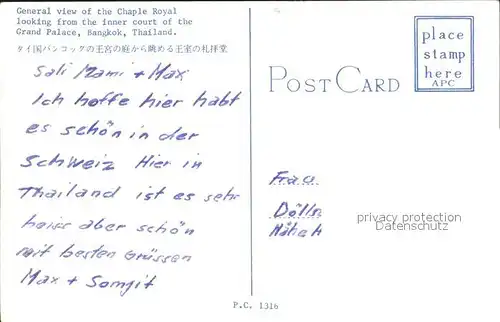 General view of the Chaple Royal
looking from the inner court of the
Grand Palace, Bangkok, Thailand.
タイ国バンコックの王宮の庭から眺める王室の礼拝堂
Sali Mami + Max
Ich hoffe hier habt
es schön in der
Schweiz Hier in
Thailand ist es sehr
heiss aber schön
mit besten Grüssen
Max + Somjit
POST CARD
place
stamp
here
APC
Frau
privacy protection
Datenschutz
P.C. 1316